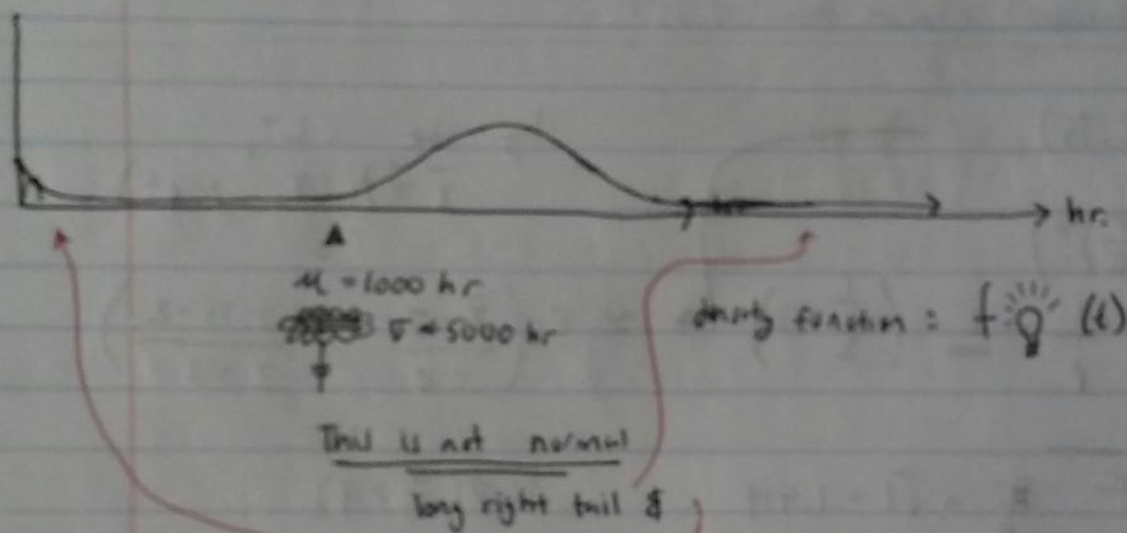 hr.
μ = 1000 hr
σ = 5000 hr
density function : f (t)
This is not normal
long right tail &